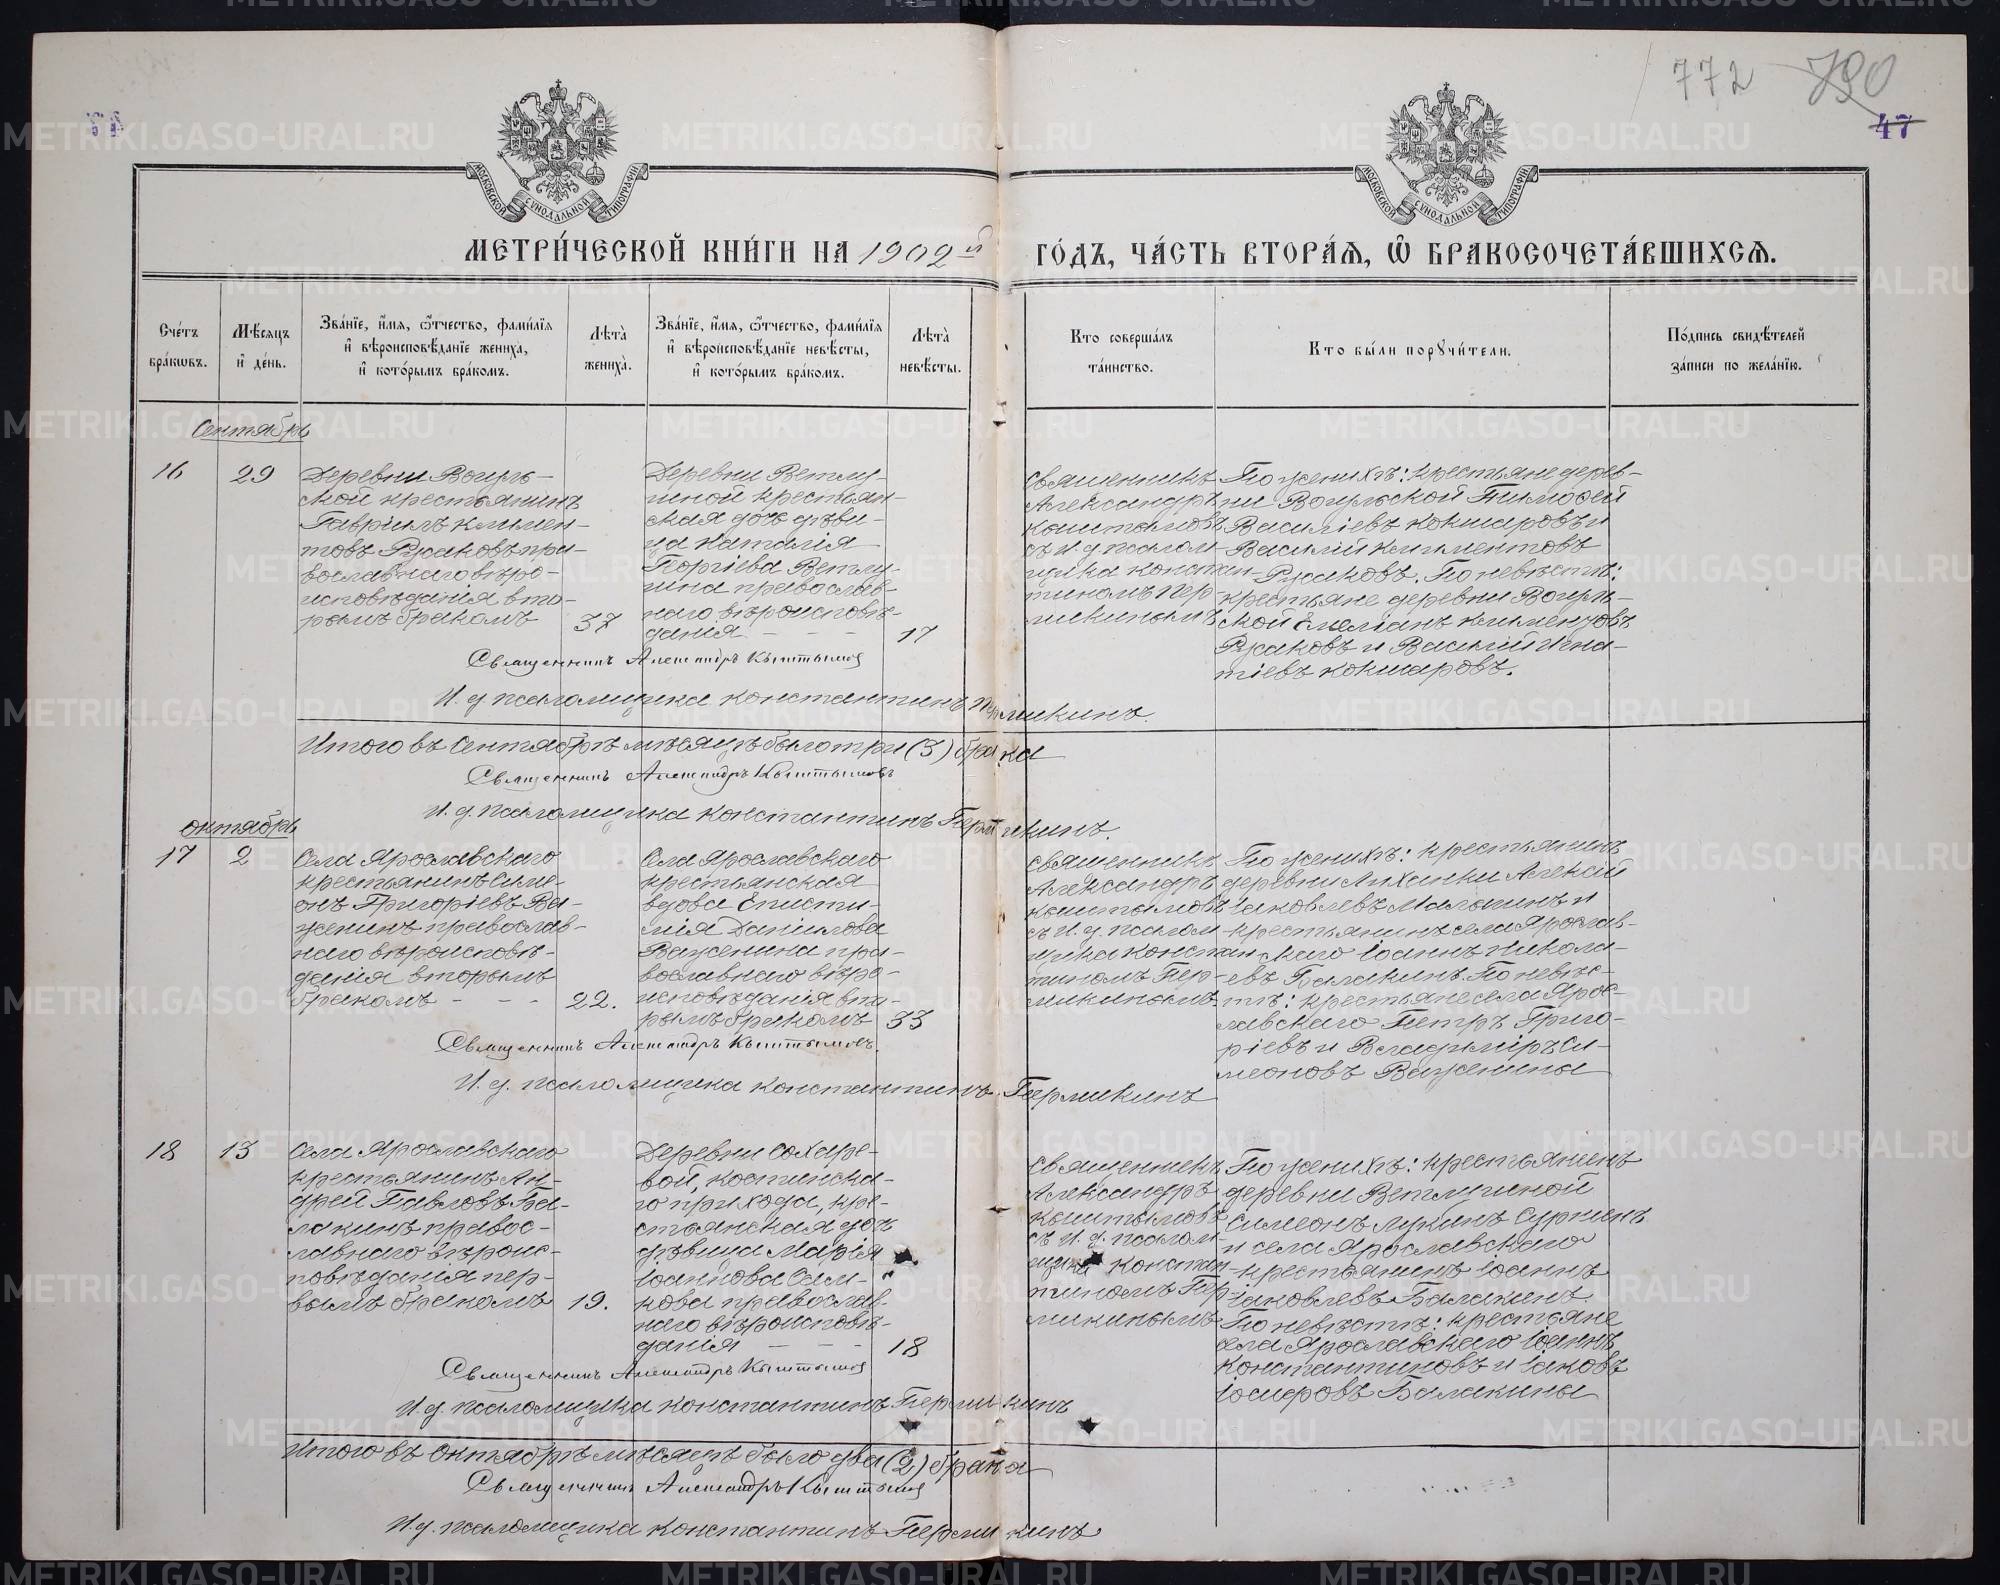 772 790
47
МОСКОВСКОЙ СѴНОДАЛЬНОЙ ТИПОГРАФІИ
МОСКОВСКОЙ СѴНОДАЛЬНОЙ ТИПОГРАФІИ
МЕТРИ́ЧЕСКОЙ КНИ́ГИ НА 1902й ГО́ДЪ, ЧА́СТЬ ВТОРА́Я, Ѽ БРАКОСОЧЕТА́ВШИХСЯ.
Сче́тъ
бра́кѡвъ.
Мѣ́сяцъ
и҆ де́нь.
Зва́нїе, и҆́мя, ѻ҆́тчество, фами́лїя
и҆ вѣроисповѣ́данїе жениха̀,
и҆ кото́рымъ бра́комъ.
Лѣта̀
жениха̀.
Зва́нїе, и҆́мя, ѻ҆́тчество, фами́лїя
и҆ вѣроисповѣ́данїе невѣ́сты,
и҆ кото́рымъ бра́комъ.
Лѣта̀
невѣ́сты.
Кто соверша́лъ
та́инство.
Кто бы́ли порꙋчи́тели.
По́дпись свидѣ́телей
за́писи по жела́нїю.
Сентябрь
16
29
Деревни Вогуль-
ской крестьянинъ
Гавріилъ Климен-
товъ Русаковъ пра-
вославнаго вѣро-
исповѣданія вто-
рымъ бракомъ
37
Деревни Ветлу-
гиной крестьян-
ская дочь дѣви-
ца Наталія
Георгіева Ветлу-
гина православ-
наго вѣроисповѣ-
данія - - -
17
Священникъ
Александръ
Кыштымовъ
съ И. д. псалом-
щика Констан-
тиномъ Пер-
микинымъ
По женихѣ: крестьяне дерев-
ни Вогульской Тимофей
Василіевъ Кокшаровъ и
Василій Климентовъ
Русаковъ. По невѣстѣ:
крестьяне деревни Вогуль-
ской Емеліанъ Климентовъ
Русаковъ и Василій Игна-
тіевъ Кокшаровъ.
Священникъ Александръ Кыштымовъ
И. д. псаломщика Константинъ Пермикинъ.
Итого въ Сентябрѣ мѣсяцѣ было три (3) брака
Священникъ Александръ Кыштымовъ
И. д. псаломщика Константинъ Пермикинъ.
Октябрь
17
2
Села Ярославскаго
крестьянинъ Симе-
онъ Григоріевъ Ва-
женинъ православ-
наго вѣроисповѣ-
данія вторымъ
бракомъ - - -
22.
Села Ярославскаго
крестьянская
вдова Еписти-
мія Даніилова
Важенина пра-
вославнаго вѣро-
исповѣданія вто-
рымъ бракомъ
33
Священникъ
Александръ
Кыштымовъ
съ И. д. псалом-
щика Констан-
тиномъ Пер-
микинымъ
По женихѣ: крестьянинъ
деревни Лиханки Алексій
Іаковлевъ Малыгинъ и
крестьянинъ села Ярослав-
скаго Іоаннъ Никола-
евъ Балакинъ. По невѣс-
тѣ: крестьяне села Ярос-
лавскаго Петръ Григо-
ріевъ и Владиміръ Си-
меоновъ Важенины
Священникъ Александръ Кыштымовъ.
И. д. псаломщика Константинъ Пермикинъ
18
13
Села Ярославскаго
крестьянинъ Ан-
дрей Павловъ Ба-
лакинъ правос-
лавнаго вѣроис-
повѣданія пер-
вымъ бракомъ
19.
Деревни Сохаре-
вой, Костинска-
го прихода, кре-
стьянская дочь
дѣвица Марія
Іоаннова Сам-
кова православ-
наго вѣроисповѣ-
данія - - -
18
Священникъ
Александръ
Кыштымовъ
съ И. д. псалом-
щика Констан-
тиномъ Пер-
микинымъ
По женихѣ: крестьянинъ
деревни Ветлугиной
Симеонъ Лукинъ Суркинъ
и села Ярославскаго
крестьянинъ Іоаннъ
Іаковлевъ Балакинъ.
По невѣстѣ: крестьяне
села Ярославскаго Іоаннъ
Константиновъ и Іаковъ
Іосифовъ Балакины
Священникъ Александръ Кыштымовъ
И. д. псаломщика Константинъ Пермикинъ
Итого въ Октябрѣ мѣсяцѣ было два (2) брака
Священникъ Александръ Кыштымовъ
И. д. псаломщика Константинъ Пермикинъ
METRIKI.GASO-URAL.RU